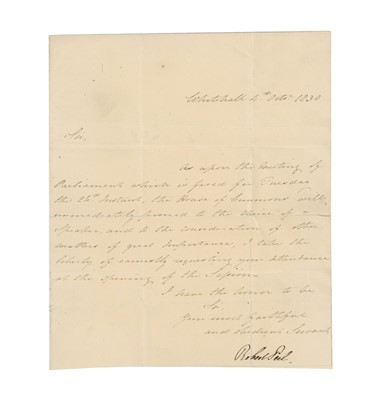 Whitehall 4th Octr 1830
Sir,
As upon the meeting of
Parliament which is fixed for Tuesday
the 26th Instant, the House of Commons will
immediately proceed to the choice of a
Speaker, and to the consideration of other
matters of great importance, I take the
liberty of earnestly requesting your attendance
at the opening of the Session.
I have the honor to be
Sir
Your most faithful
and Obedient Servant
Robert Peel.